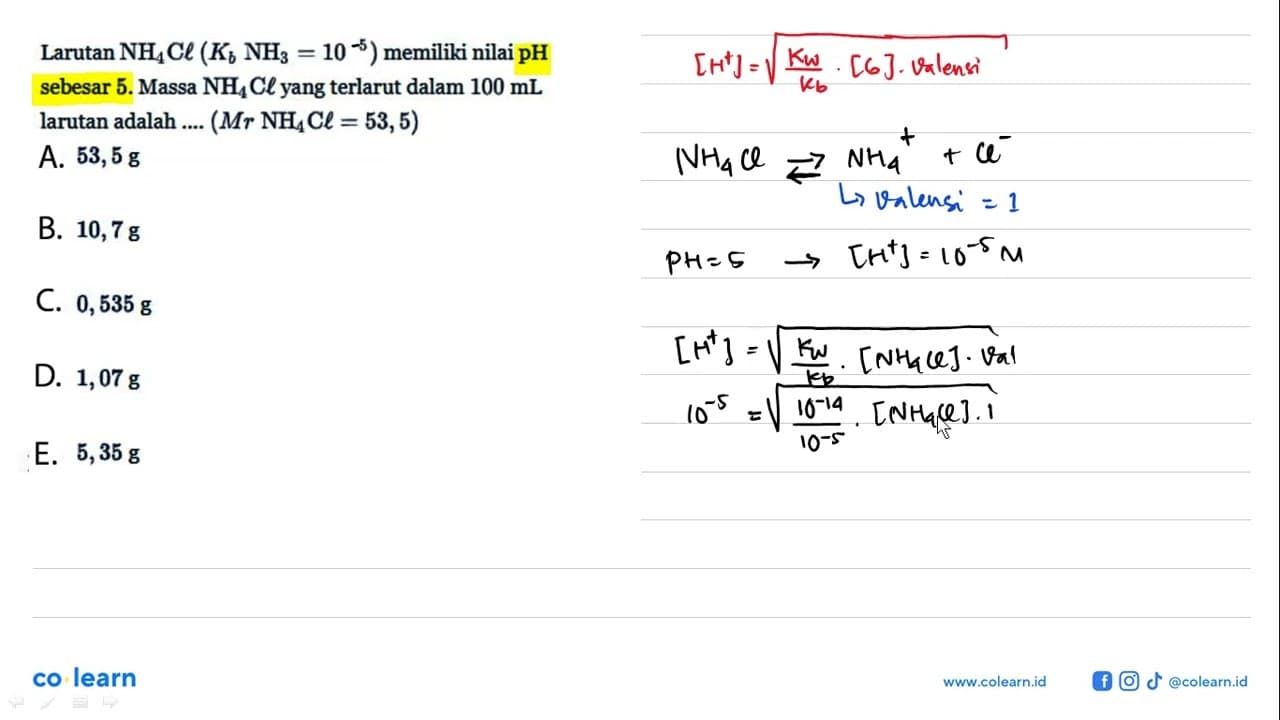 Larutan NH₄Cℓ (K_b NH₃ = 10⁻⁵) memiliki nilai pH
sebesar 5. Massa NH₄Cℓ yang terlarut dalam 100 mL
larutan adalah .... (Mr NH₄Cℓ = 53, 5)
A. 53, 5 g
B. 10, 7 g
C. 0, 535 g
D. 1, 07 g
E. 5, 35 g
[H⁺] = √(Kw/Kb . [G] . Valensi)
NH₄Cl ⇄ NH₄⁺ + Cl⁻
↳ Valensi = 1
PH = 5 → [H⁺] = 10⁻⁵ M
[H⁺] = √(Kw/Kb . [NH₄Cl] . Val)
10⁻⁵ = √(10⁻¹⁴/10⁻⁵ . [NH₄Cl] . 1)
co learn
www.colearn.id
@colearn.id